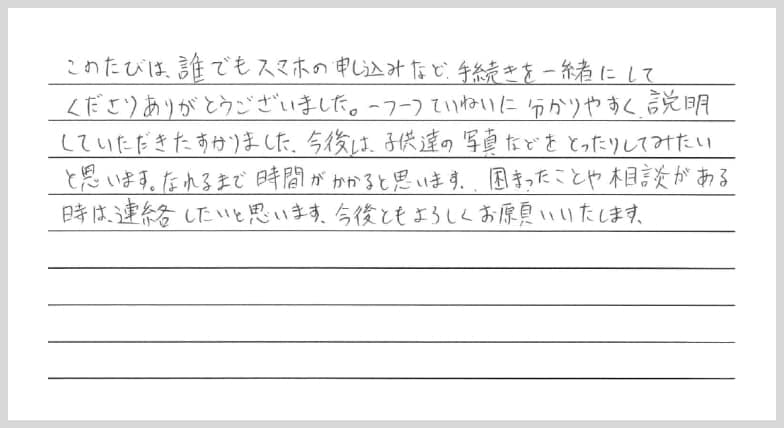 このたびは、誰でもスマホの申し込みなど、手続きを一緒にして
くださりありがとうございました。一つ一つていねいに分かりやすく、説明
していただきたすかりました。今後は、子供達の写真などをとったりしてみたい
と思います。なれるまで時間がかかると思います。困まったことや相談がある
時は、連絡したいと思います。今後ともよろしくお願いいたします。